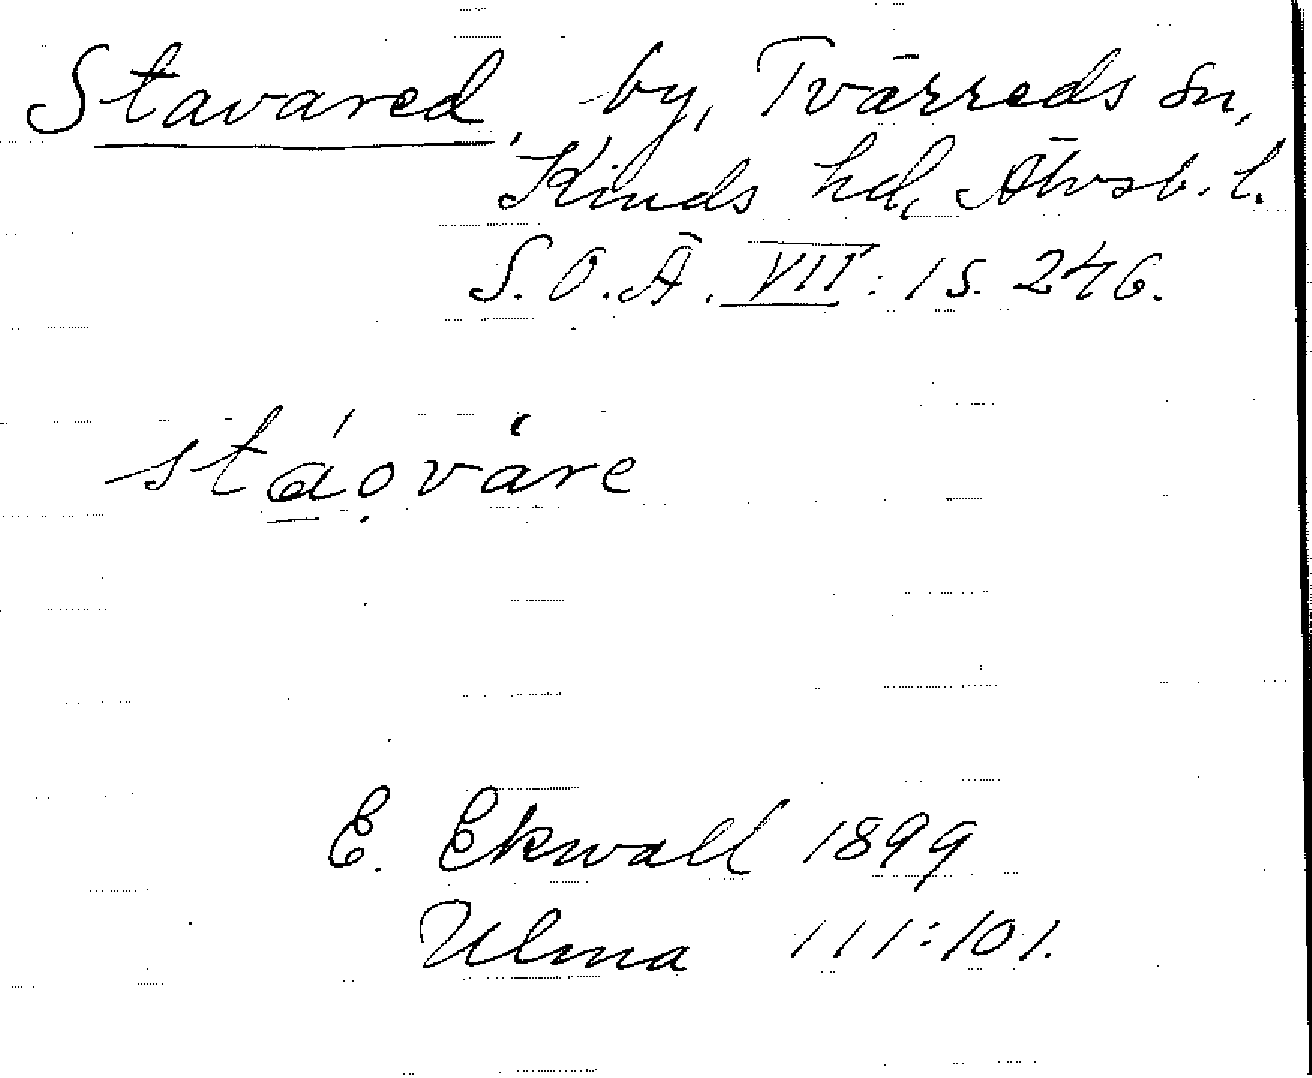 Stavared, by, Tvärreds sn,
Kinds hd, Älvsb. l.
S.O.Ä. VII:1 s. 246.
stáo̤våre
E. Ekwall 1899
Ulma 111:101.